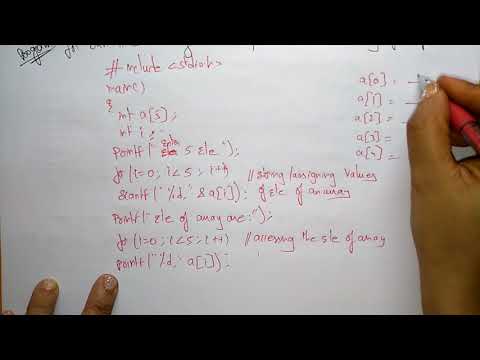 Program for
#include <stdio.h>
main()
{
int a[5];
int i;
printf("Enter 5 Ele");
for (i=0; i<5; i++) //storing/assigning values
scanf("%d, &a[i]); of ele of an array
printf("Ele of array are:");
for (i=0; i<5; i++) //accessing the ele of array
printf("%d, a[i]);
a[0] =
a[1] =
a[2] =
a[3] =
a[4] =